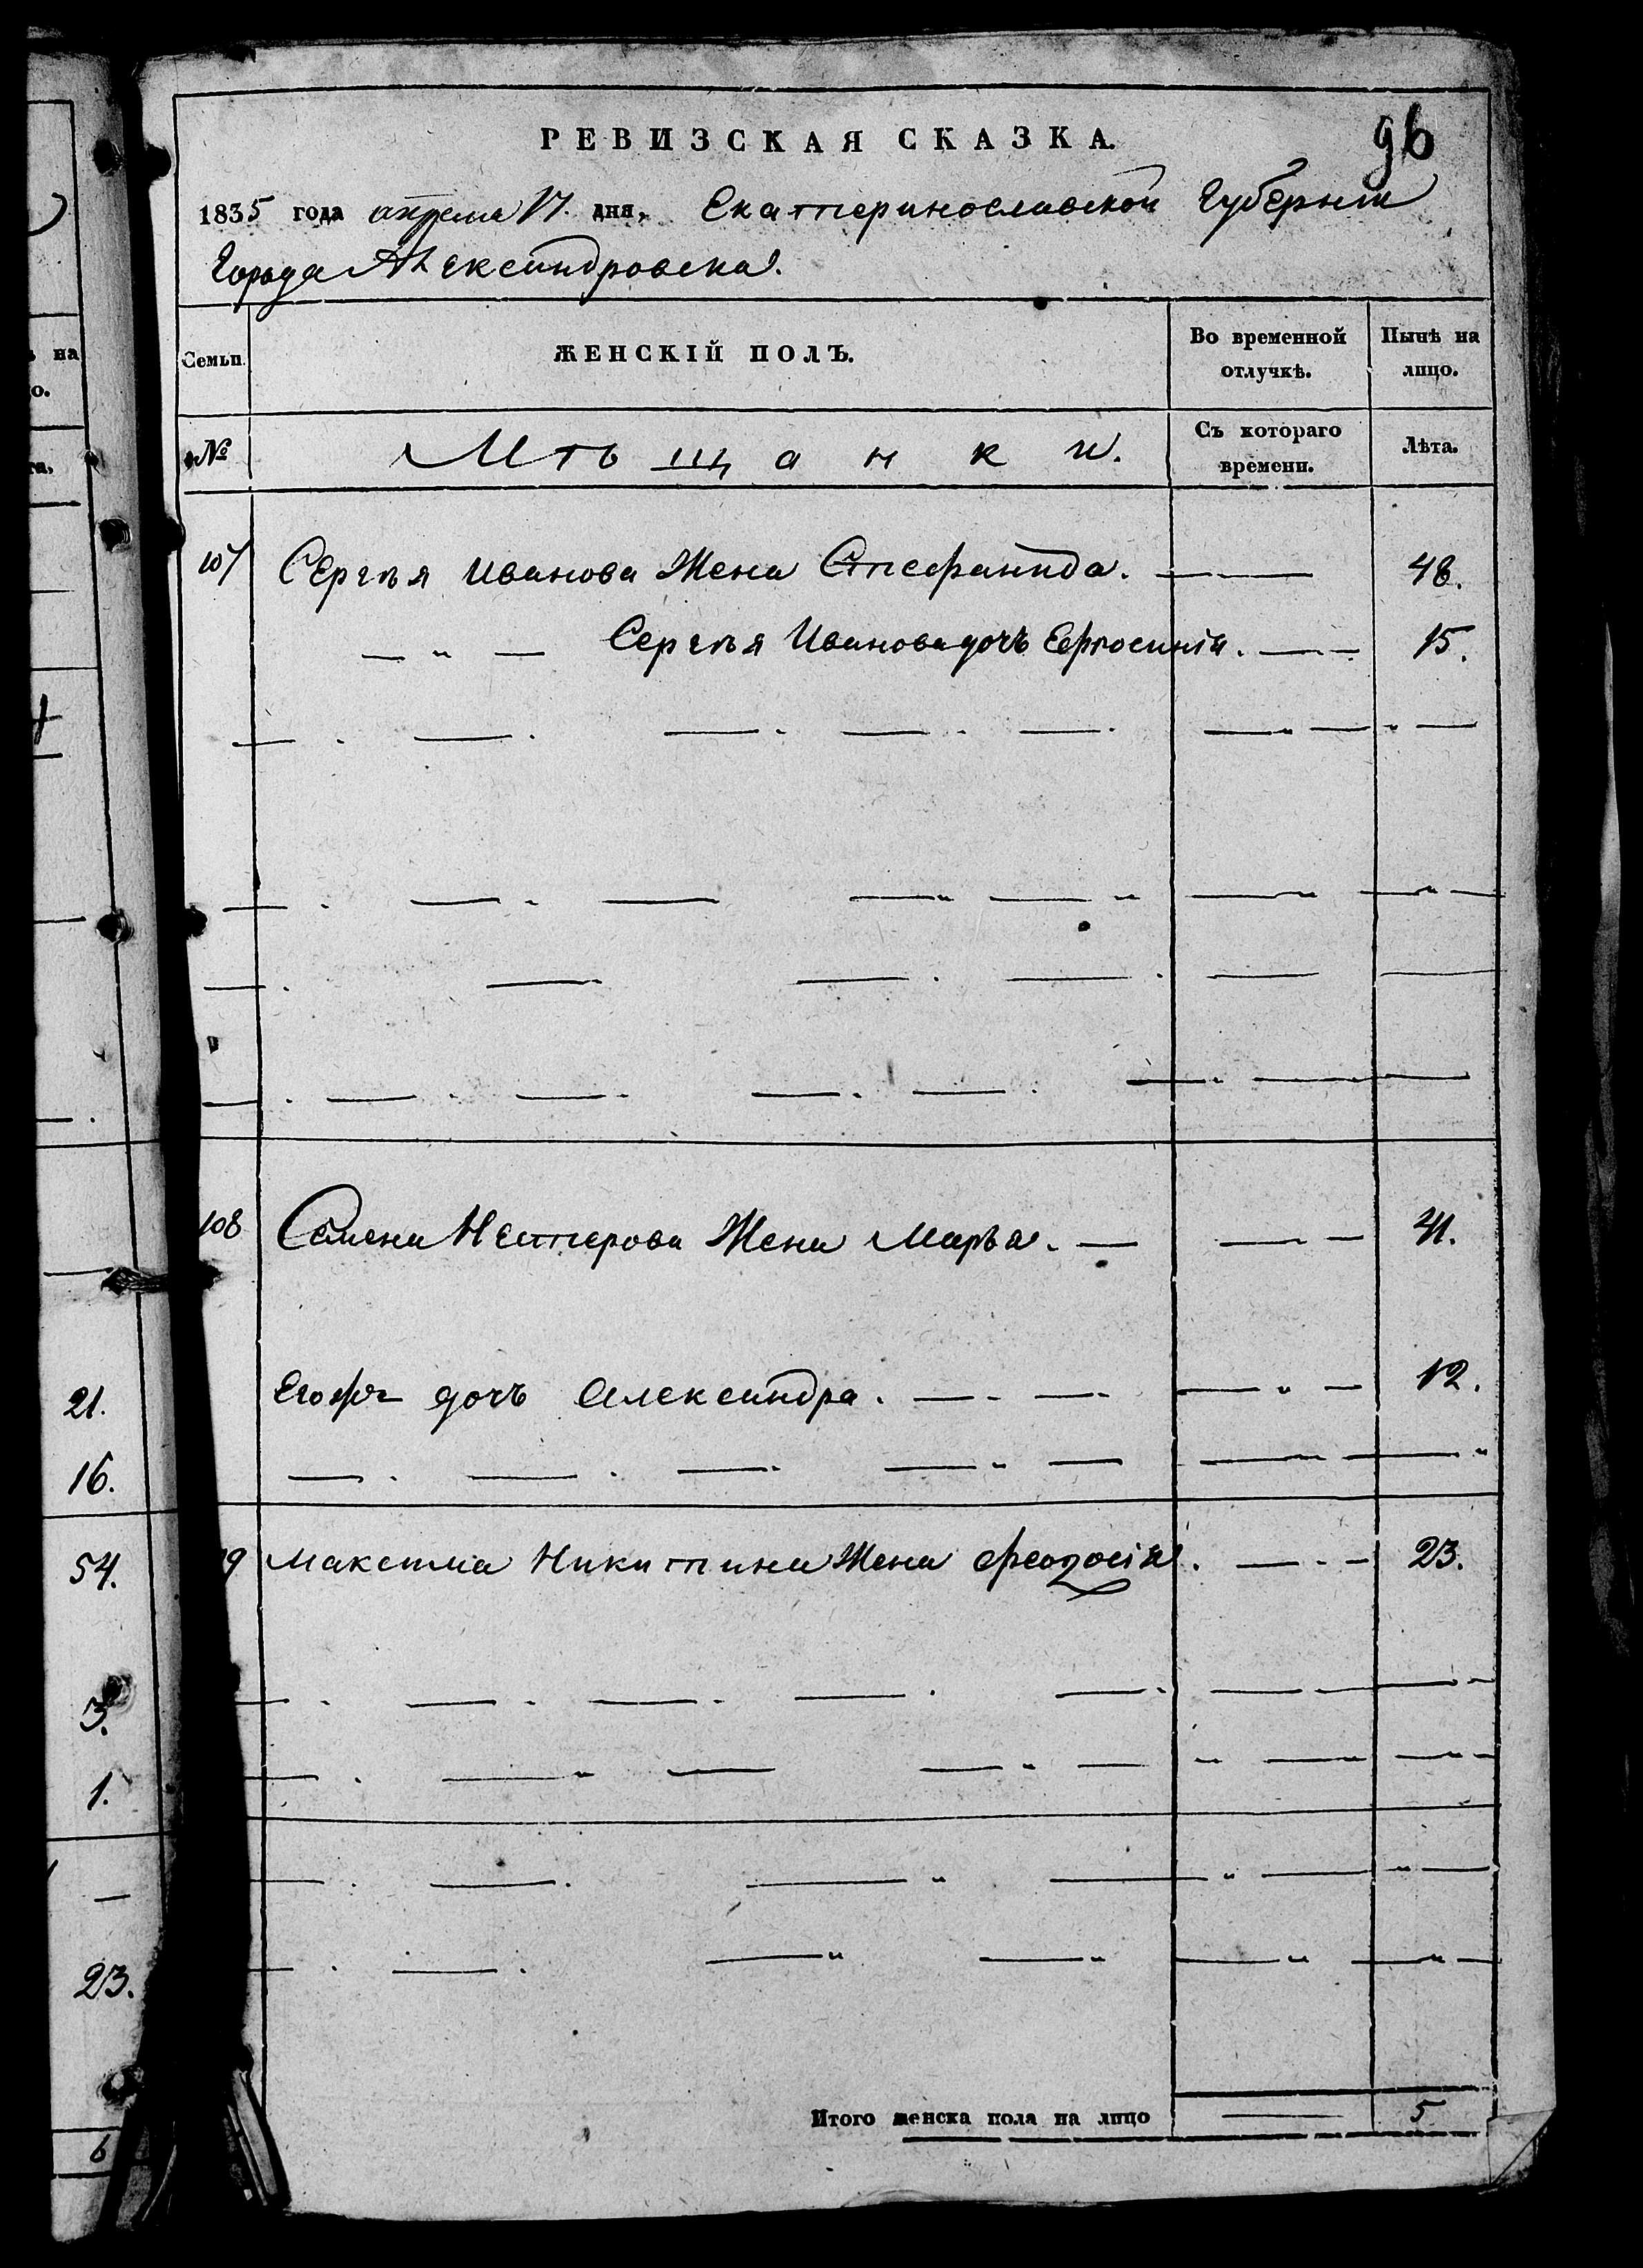 на
о.
та.
21.
16.
54.
3.
1.
23.
6
РЕВИЗСКАЯ СКАЗКА. 96
1835 года апреля 17. дня, Екатеринославской Губернии
Города Александровска.
Семьи. ЖЕНСКІЙ ПОЛЪ. Во временной отлучкѣ. Нынѣ на лицо.
№ Мѣщанки. Съ котораго времени. Лѣта.
107 Сергѣя Иванова Жена Стефанида. 48.
" Сергѣя Иванова дочь Ефросинія. 15.
108 Семена Нестерова Жена Марья. 41.
Его дочь Александра. 12.
9 Максима Никитина Жена Феодосія. 23.
Итого женска пола на лицо 5